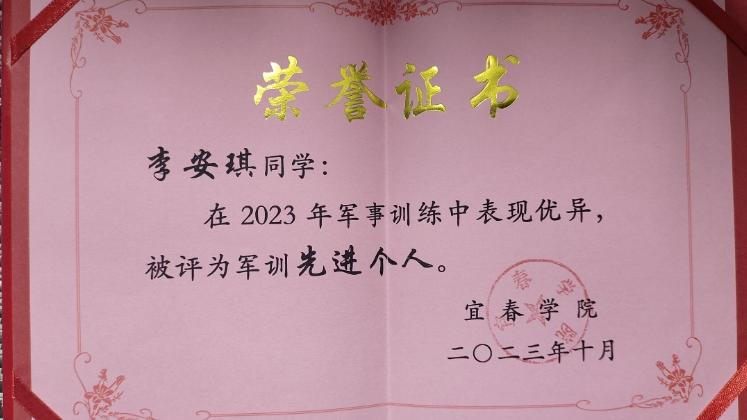 荣誉证书
李安琪同学：
在 2023 年军事训练中表现优异，
被评为军训先进个人。
宜春学院
宜春学院
二〇二三年十月